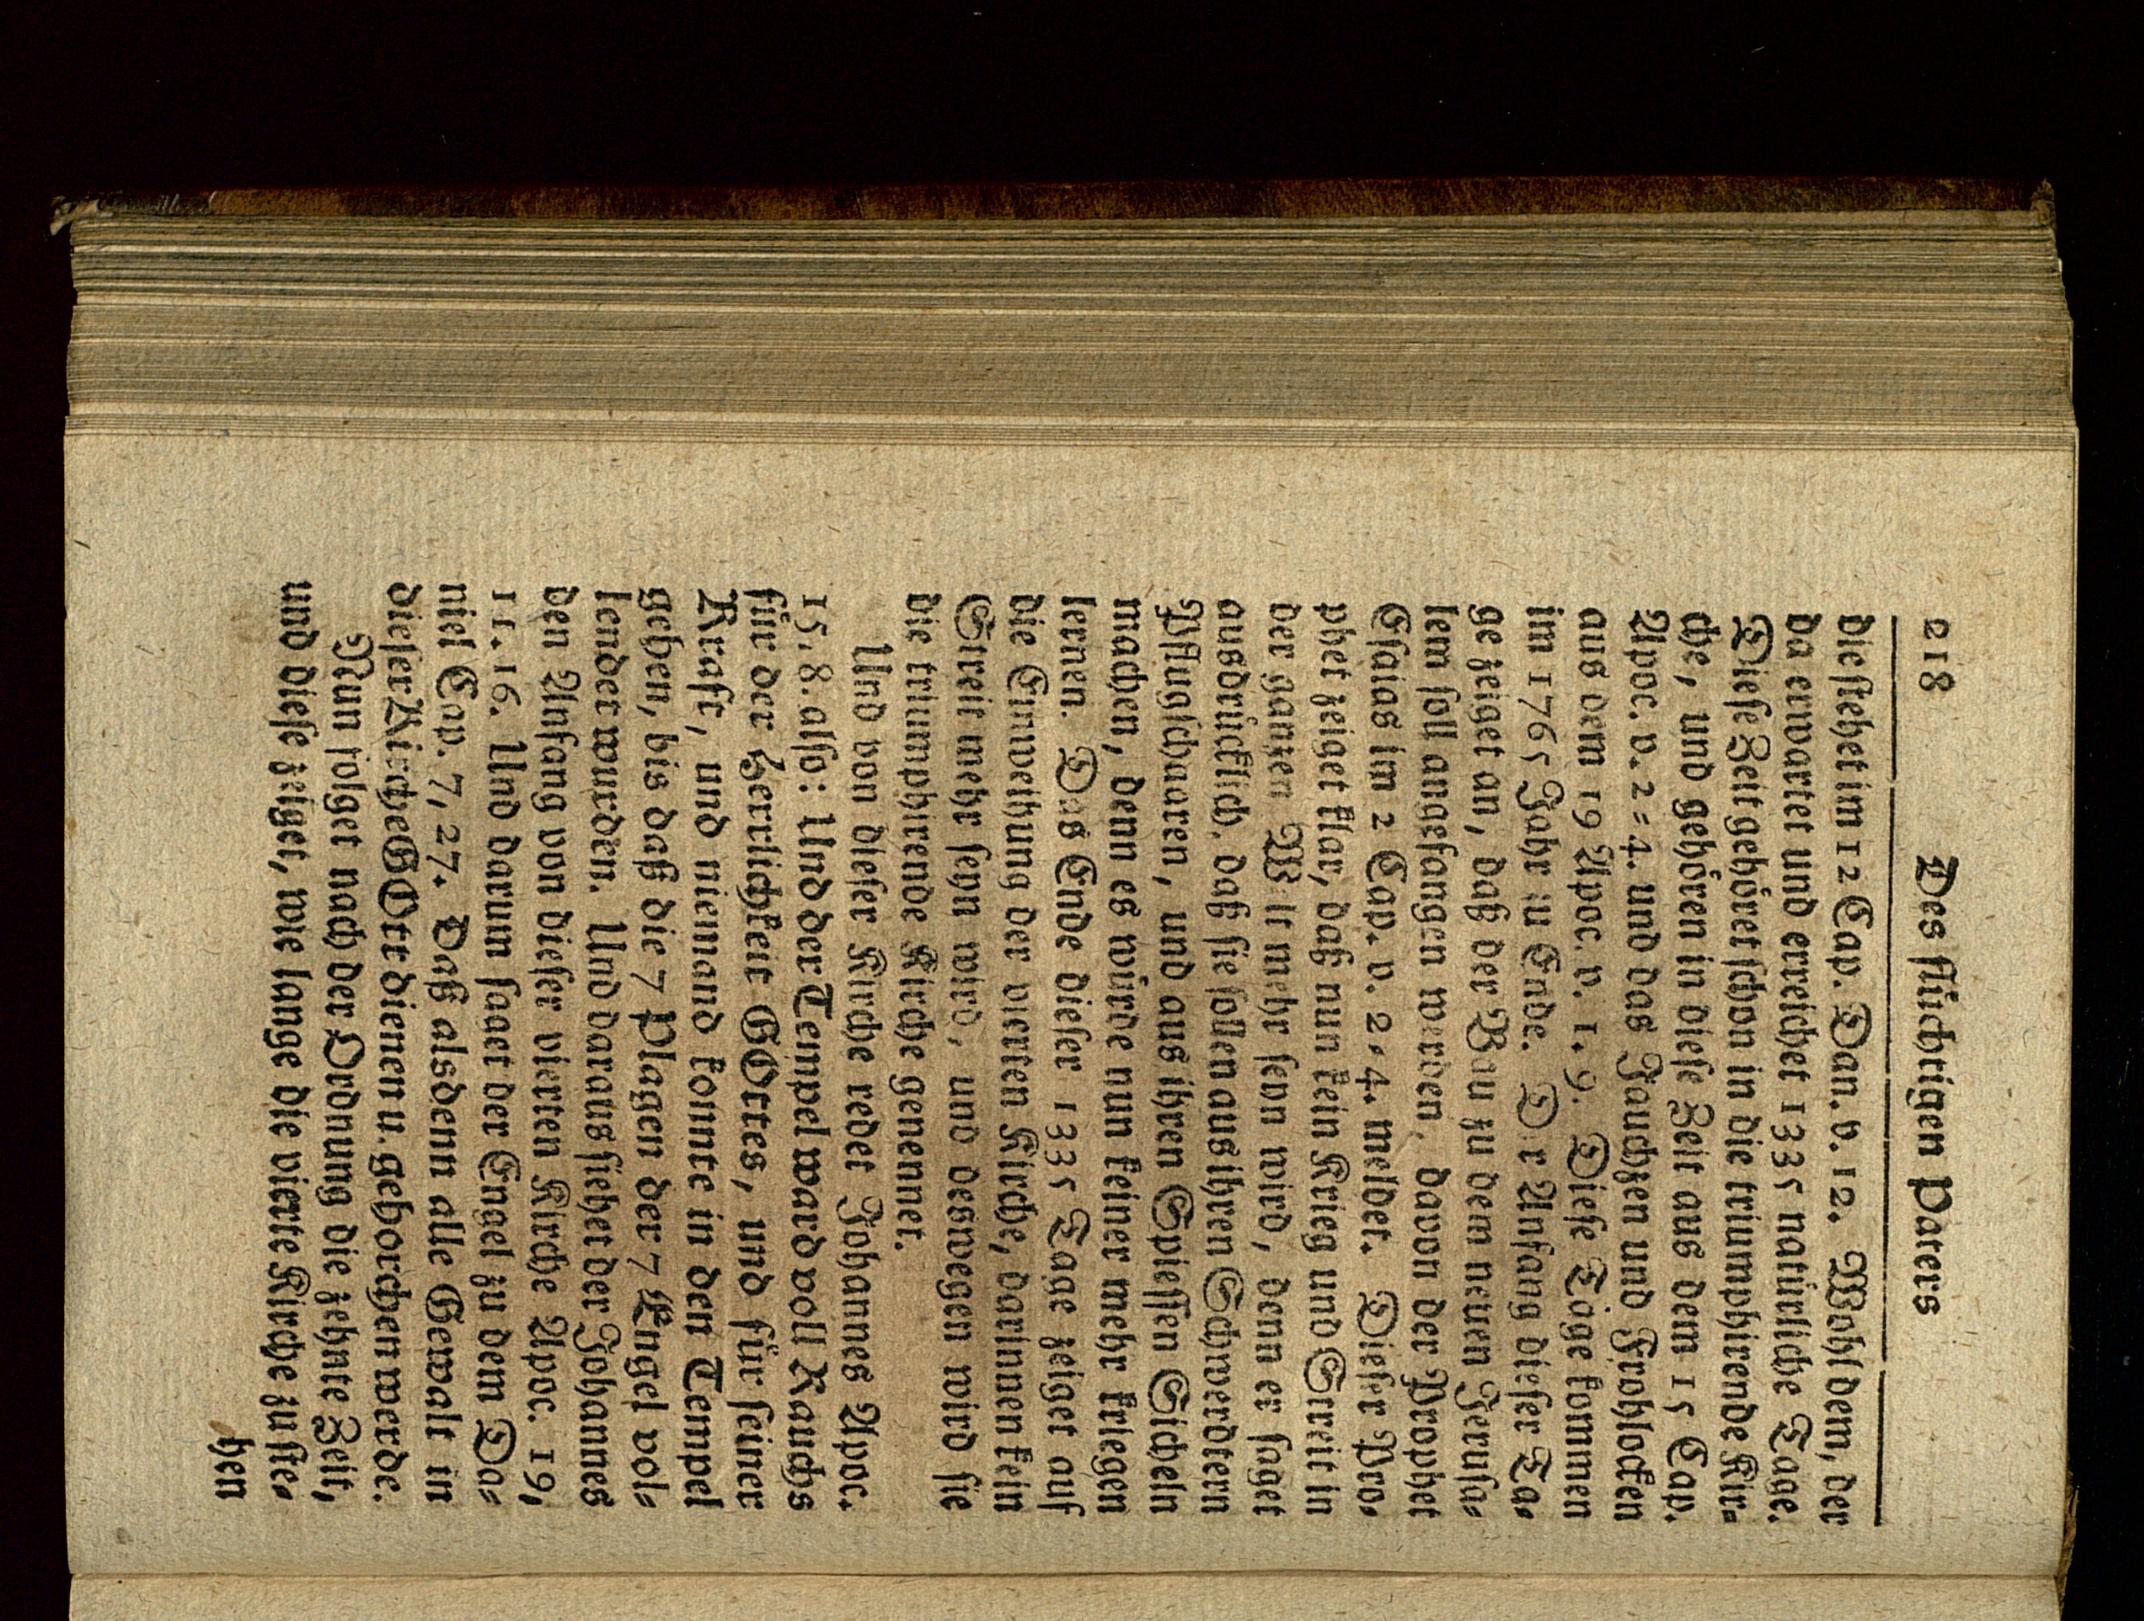 218 Des flüchtigen Paters
die stehet im 12 Cap. Dan. v. 12. Wohl dem, der
da erwartet und erreichet 1335 natürliche Tage.
Diese Zeit gehöret schon in die triumphirende Kir-
che, und gehören in diese Zeit aus dem 15 Cap.
Apoc. v. 2=4. und das Jauchzen und Frohlocken
aus dem 19 Apoc. v. 1. 9. Diese Tage kommen
im 1765 Jahr zu Ende. Der Anfang dieser Ta-
ge zeiget an, daß der Bau zu dem neuen Jerusa-
lem soll angefangen werden, davon der Prophet
Esaias im 2 Cap. v. 2-4. meldet. Dieser Pro-
phet zeiget klar, daß nun kein Krieg und Streit in
der ganzen Welt mehr seyn wird, denn er saget
ausdrücklich, daß sie sollen aus ihren Schwerdtern
Pflugschaaren, und aus ihren Spiessen Sicheln
machen, denn es würde nun keiner mehr kriegen
lernen. Das Ende dieser 1335 Tage zeiget auf
die Einweihung der vierten Kirche, darinnen kein
Streit mehr seyn wird, und deswegen wird sie
die triumphirende Kirche genennet.
Und von dieser Kirche redet Johannes Apoc.
15. 8. also: Und der Tempel ward voll Rauchs
für der Herrlichkeit GOttes, und für seiner
Kraft, und niemand konnte in den Tempel
gehen, bis daß die 7 Plagen der 7 Engel vol-
lendet wurden. Und daraus siehet der Johannes
den Anfang von dieser vierten Kirche Apoc. 19,
11. 16. Und darum saget der Engel zu dem Da-
niel Cap. 7, 27. Daß alsdenn alle Gewalt in
dieser Kirche GOtt dienen u. gehorchen werde.
Nun folget nach der Ordnung die zehnte Zeit,
und diese zeiget, wie lange die vierte Kirche zu ste-
hen